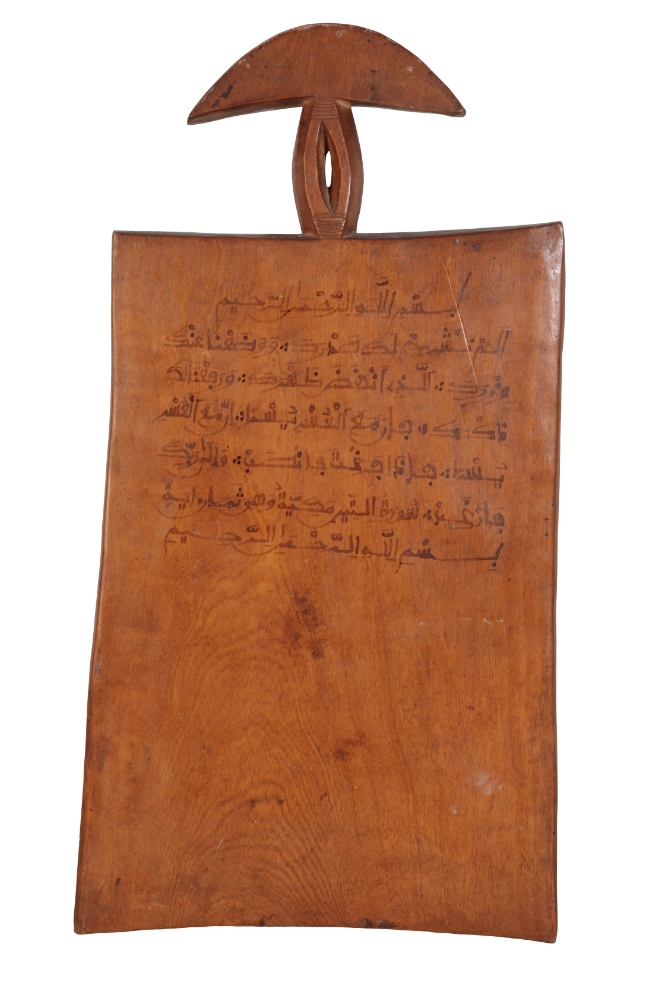 بسم الله الرحمن الرحيم
الم نشرح لك صدرك ووضعنا عنك
وزرك الذي انقض ظهرك ورفعنا لك
ذكرك فإن مع العسر يسرا إن مع العسر
يسرا فإذا فرغت فانصب وإلى ربك
فارغب سورة التين مكية وهي ثمان اية
بسم الله الرحمن الرحيم